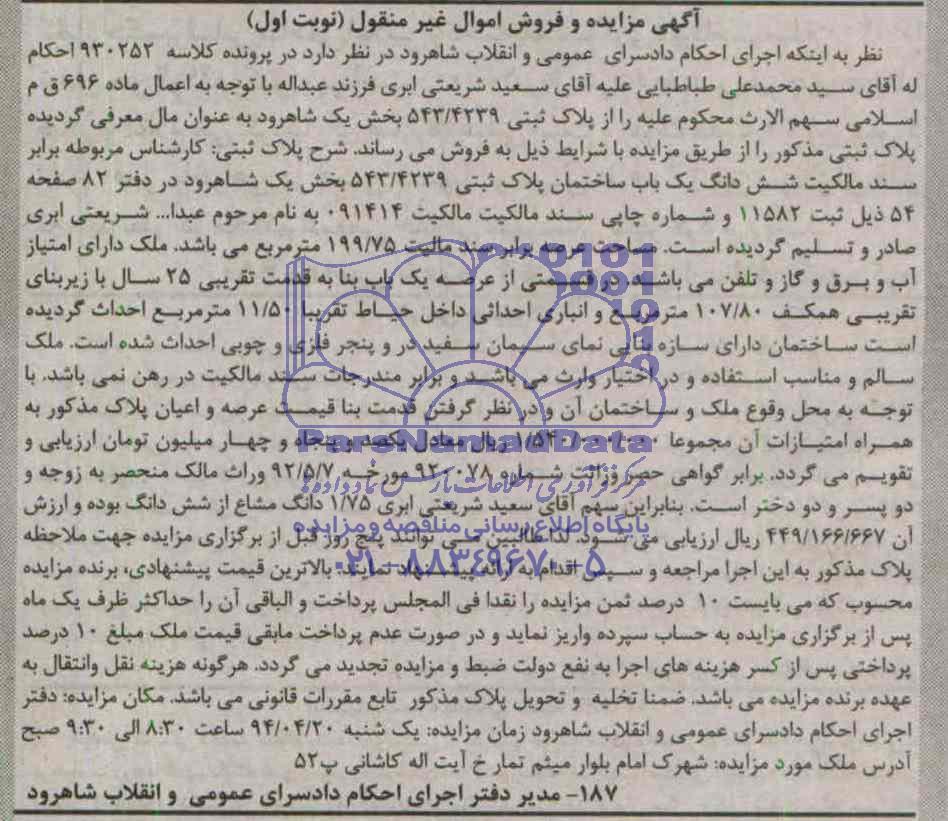 آگهی مزایده و فروش اموال غیر منقول (نوبت اول)
نظر به اینکه اجرای احکام دادسرای عمومی و انقلاب شاهرود در نظر دارد در پرونده کلاسه ۹۳۰۲۵۲ احکام
له آقای سید محمدعلی طباطبایی علیه آقای سعید شریعتی ابری فرزند عبداله با توجه به اعمال ماده ۶۹۶ ق م
اسلامی سهم الارث محکوم علیه را از پلاک ثبتی ۵۴۳/۴۲۳۹ بخش یک شاهرود به عنوان مال معرفی گردیده
پلاک ثبتی مذکور را از طریق مزایده با شرایط ذیل به فروش می رساند. شرح پلاک ثبتی: کارشناس مربوطه برابر
سند مالکیت شش دانگ یک باب ساختمان پلاک ثبتی ۵۴۳/۴۲۳۹ بخش یک شاهرود در دفتر ۸۲ صفحه
۵۴ ذیل ثبت ۱۱۵۸۲ و شماره چاپی سند مالکیت مالکیت ۰۹۱۴۱۴ به نام مرحوم عبدا... شریعتی ابری
صادر و تسلیم گردیده است. مساحت عرصه برابر سند مالیت ۱۹۹/۷۵ مترمربع می باشد. ملک دارای امتیاز
آب و برق و گاز و تلفن می باشد. در قسمتی از عرصه یک باب بنا به قدمت تقریبی ۲۵ سال با زیربنای
تقریبی همکف ۱۰۷/۸۰ مترمربع و انباری احداثی داخل حیاط تقریبا ۱۱/۵۰ مترمربع احداث گردیده
است ساختمان دارای سازه بنایی نمای سیمان سفید در و پنجر فلزی و چوبی احداث شده است. ملک
سالم و مناسب استفاده و در اختیار وارث می باشد و برابر مندرجات سند مالکیت در رهن نمی باشد. با
توجه به محل وقوع ملک و ساختمان آن و در نظر گرفتن قدمت بنا قیمت عرصه و اعیان پلاک مذکور به
همراه امتیازات آن مجموعا ۱/۵۴۰/۰۰۰/۰۰۰ ریال معادل یکصد و پنجاه و چهار میلیون تومان ارزیابی و
تقویم می گردد. برابر گواهی حصر وراثت شماره ۹۲۰۰۷۸ مورخه ۹۲/۵/۷ وراث مالک منحصر به زوجه و
دو پسر و دو دختر است. بنابراین سهم آقای سعید شریعتی ابری ۱/۷۵ دانگ مشاع از شش دانگ بوده و ارزش
آن ۴۴۹/۱۶۶/۶۶۷ ریال ارزیابی می شود. لذا طالبین می توانند پنج روز قبل از برگزاری مزایده جهت ملاحظه
پلاک مذکور به این اجرا مراجعه و سپس اقدام به ارائه پیشنهاد نمایند. بالاترین قیمت پیشنهادی، برنده مزایده
محسوب که می بایست ۱۰ درصد ثمن مزایده را نقدا فی المجلس پرداخت و الباقی آن را حداکثر ظرف یک ماه
پس از برگزاری مزایده به حساب سپرده واریز نماید و در صورت عدم پرداخت مابقی قیمت ملک مبلغ ۱۰ درصد
پرداختی پس از کسر هزینه های اجرا به نفع دولت ضبط و مزایده تجدید می گردد. هرگونه هزینه نقل وانتقال به
عهده برنده مزایده می باشد. ضمنا تخلیه و تحویل پلاک مذکور تابع مقررات قانونی می باشد. مکان مزایده: دفتر
اجرای احکام دادسرای عمومی و انقلاب شاهرود زمان مزایده: یک شنبه ۹۴/۰۴/۲۰ ساعت ۸:۳۰ الی ۹:۳۰ صبح
آدرس ملک مورد مزایده: شهرک امام بلوار میثم تمار خ آیت اله کاشانی پ۵۲
۱۸۷- مدیر دفتر اجرای احکام دادسرای عمومی و انقلاب شاهرود
ParsNamadData
پایگاه اطلاع رسانی مناقصه و مزایده
۰۲۱-۸۸۳۴۹۶۷۰-۵